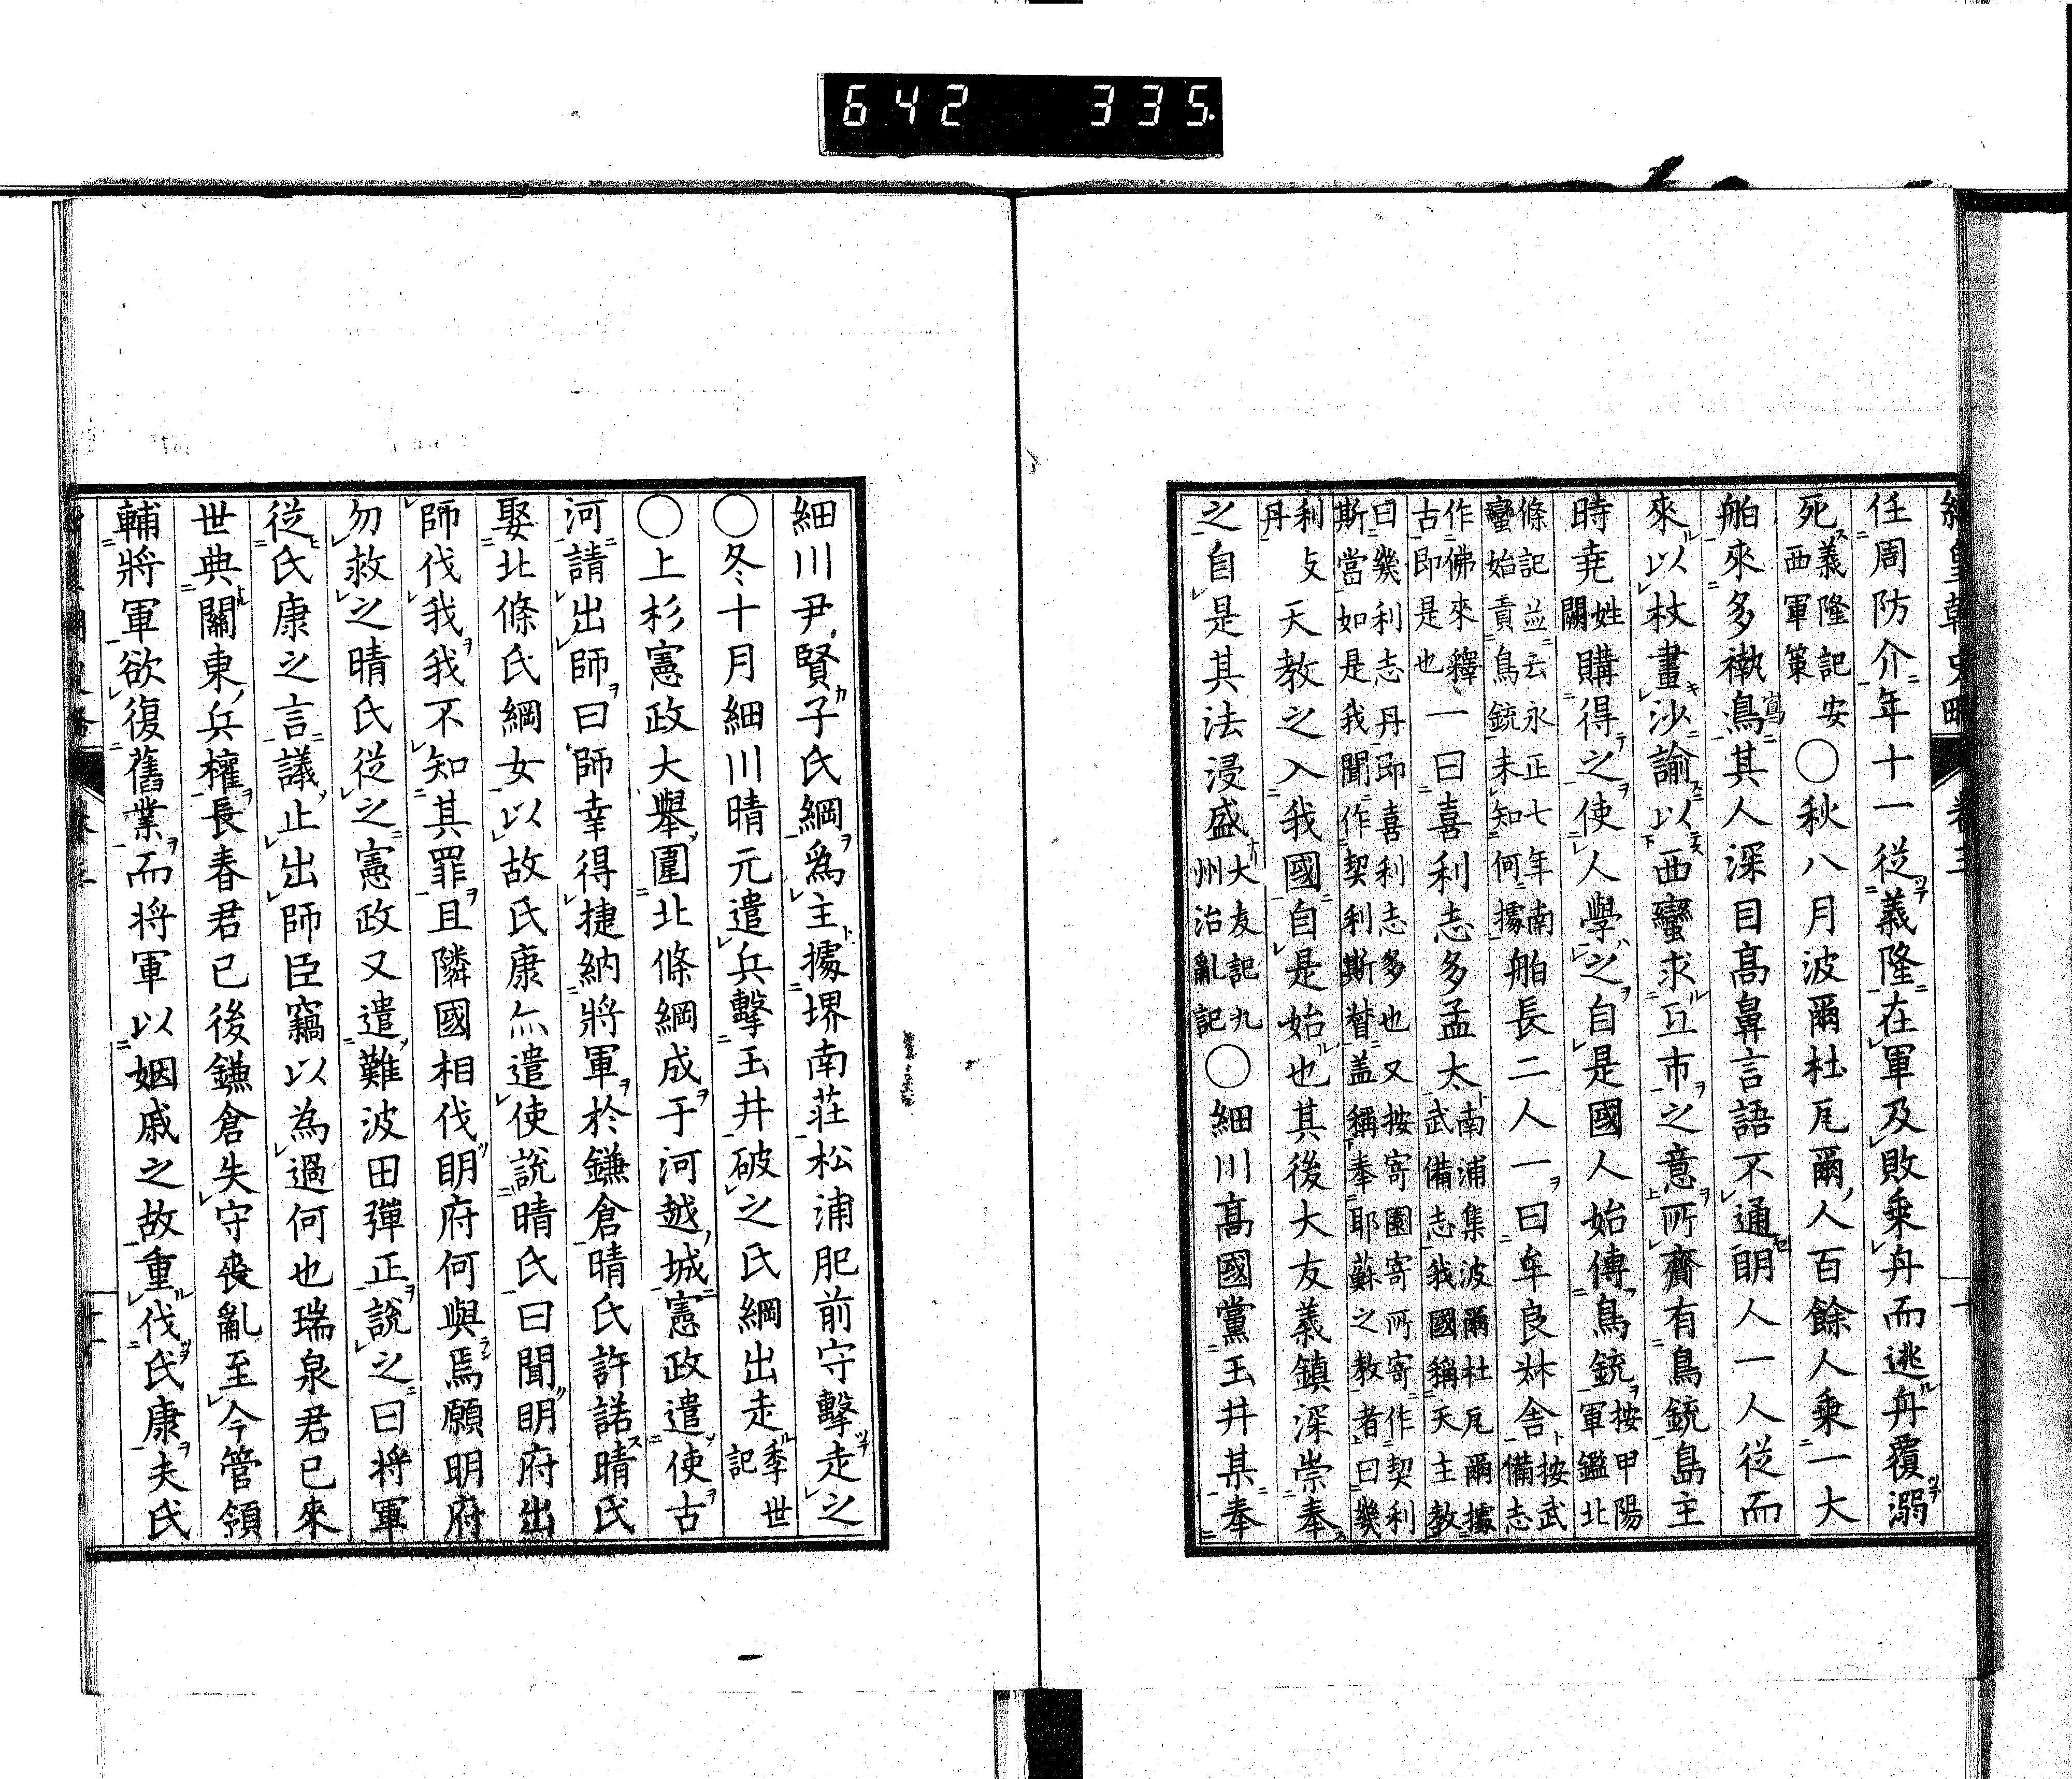 642 335
任周防介年十一從義隆在軍及敗乘舟而逃舟覆溺
死義隆記安西軍策〇秋八月波爾杜瓦爾人百餘人乘一大
舶來多褹島其人深目高鼻言語不通明人一人從而
來以杖畫沙諭以西蠻求互市之意所齎有鳥銃島主
時尭姓闕購得之使人學之自是國人始傳鳥銃按甲陽軍鑑北
條記並云永正七年南蠻始貢鳥銃未知何據舶長二人一曰牟良叔舎按武備志
作佛來釋古即是也一曰喜利志多孟太南浦集波爾杜瓦爾據武備志我國稱天主教
曰幾利志丹即喜利志多也又按寄園寄所寄作契利斯當如是我聞作契利斯督蓋稱奉耶蘇之教者曰幾
利丹天教之入我國自是始也其後大友義鎮深崇奉
之自是其法浸盛大友記九州治亂記〇細川高國黨玉井某奉
細川尹賢子氏綱爲主據堺南莊松浦肥前守擊走之
〇冬十月細川晴元遣兵擊玉井破之氏綱出走季世記
〇上杉憲政大舉圍北條綱成于河越城憲政遣使古
河請出師曰師幸得捷納將軍於鎌倉晴氏許諾晴氏
娶北條氏綱女以故氏康亦遣使說晴氏曰聞明府出
師伐我我不知其罪且隣國相伐明府何與焉願明府
勿救之晴氏從之憲政又遣難波田彈正說之曰将軍
從氏康之言議止出師臣竊以為過何也瑞泉君已來
世典關東兵權長春君已後鎌倉失守喪亂至今管領
輔將軍欲復舊業而将軍以姻戚之故重伐氏康夫氏